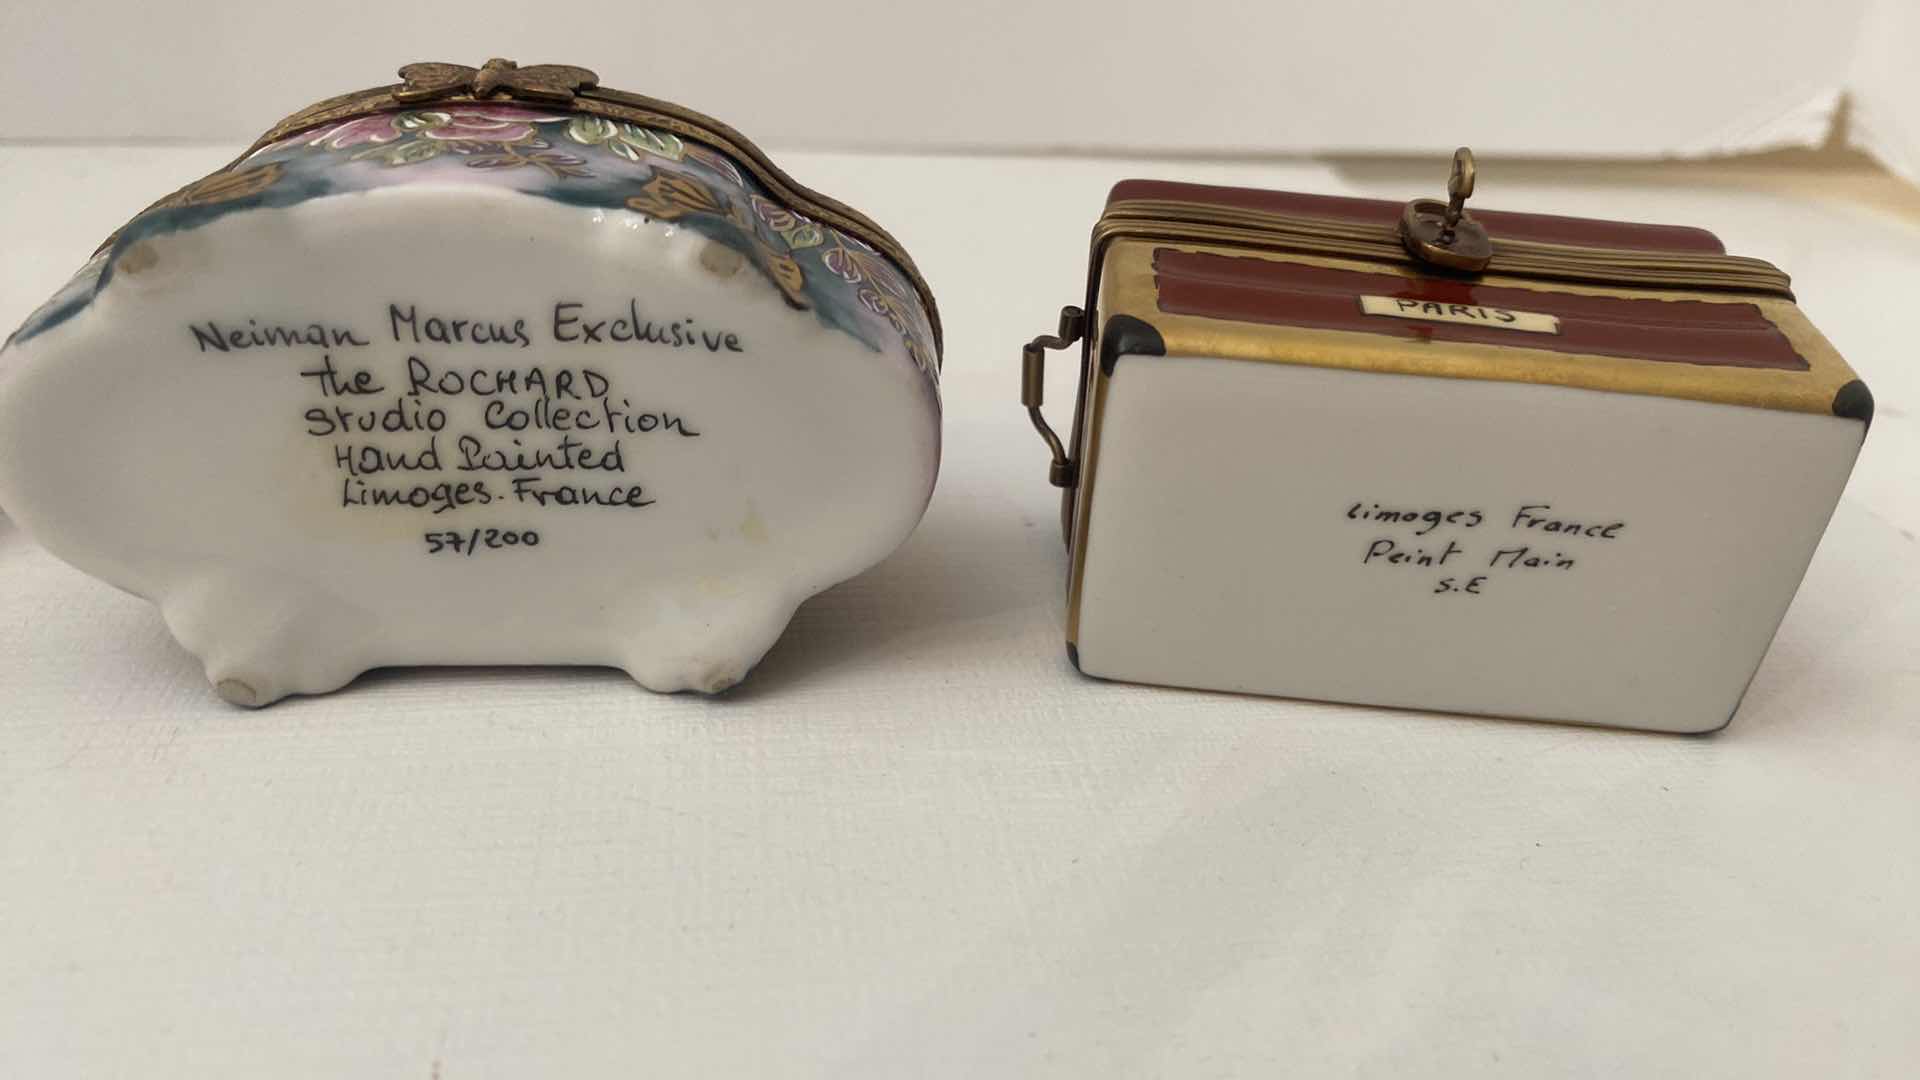 Neiman Marcus Exclusive
The ROCHARD
Studio Collection
Hand Painted
Limoges. France
57/200
PARIS
Limoges France
Peint Main
S.E